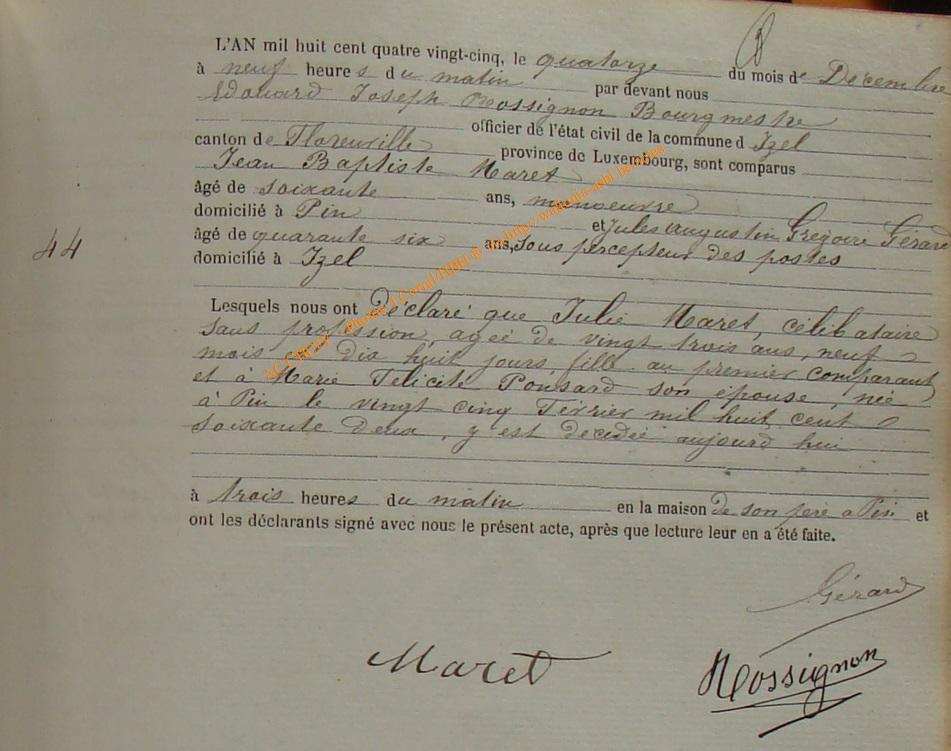 L'AN mil huit cent quatre vingt-cinq, le quatorze du mois de Décembre
à neuf heures du matin par devant nous
Edouard Joseph Rossignon Bourgmestre
officier de l'état civil de la commune d Izel
canton de Florenville province de Luxembourg, sont comparus
Jean Baptiste Maret
âgé de soixante ans, manoeuvre
domicilié à Pin et Jules Augustin Grégoire Gérard
âgé de quarante six ans, sous percepteur des postes
domicilié à Izel
44
Lesquels nous ont déclaré que Julie Maret, célibataire
sans profession, agée de vingt trois ans, neuf
mois dix huit jours, fille au premier comparant
et à Marie Félicité Ponsard son épouse, née
à Pin le vingt cinq Février mil huit cent
soixante deux, y est décédée aujourd hui
à trois heures du matin en la maison de son père a Pin et
ont les déclarants signé avec nous le présent acte, après que lecture leur en a été faite.
Gérard
Maret
Rossignon